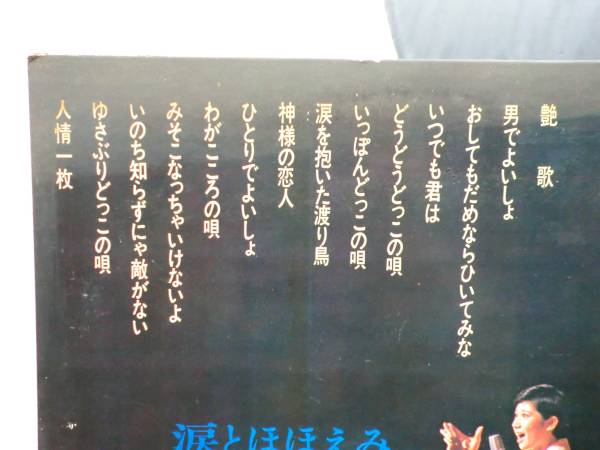 艶歌
男でよいしょ
おしてもだめならひいてみな
いつでも君は
どうどうどっこの唄
いっぽんどっこの唄
涙を抱いた渡り鳥
神様の恋人
ひとりでよいしょ
わがこころの唄
みそこなっちゃいけないよ
いのち知らずにゃ敵がない
ゆさぶりどっこの唄
人情一枚
涙とほほえみ